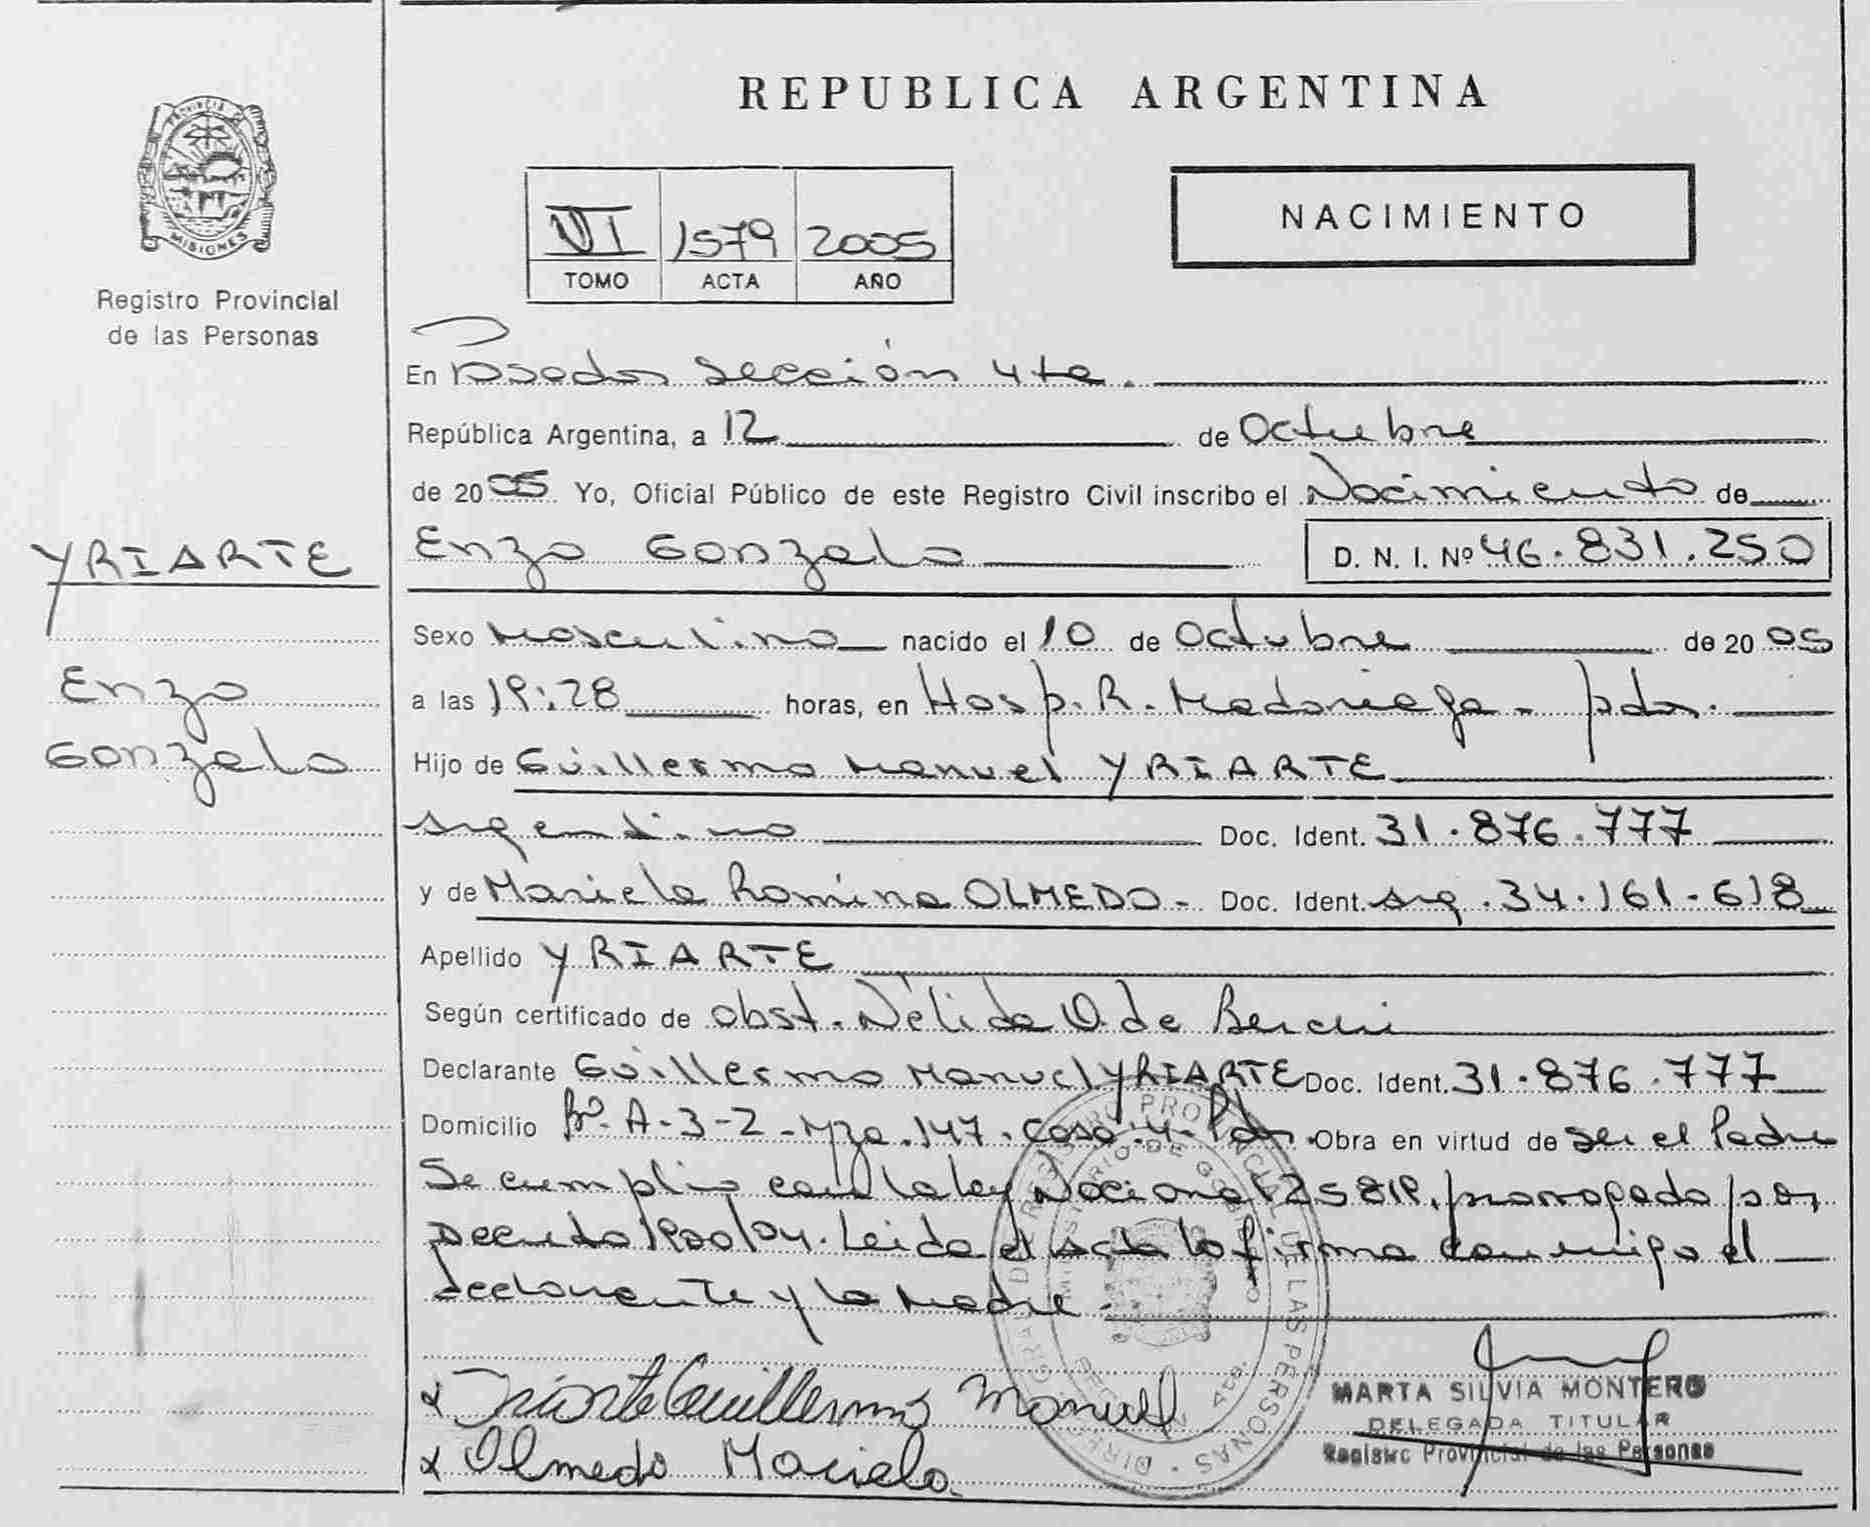 REPUBLICA ARGENTINA
PROVINCIA
MISIONES
Registro Provincial
de las Personas
NACIMIENTO
VI 1579 2005
TOMO ACTA AÑO
En Posadas Sección 4ta.
República Argentina, a 12 de Octubre
de 2005 Yo, Oficial Público de este Registro Civil inscribo el Nacimiento de
YRIARTE
Enzo Gonzalo
D. N. I. Nº 46.831.250
Sexo Masculino nacido el 10 de Octubre de 2005
Enzo
Gonzalo
a las 19:28 horas, en Hosp. R. Madariaga - pdas.
Hijo de Guillermo Manuel YRIARTE
argentino Doc. Ident. 31.876.777
y de Mariela Romina OLMEDO - Doc. Ident. arg. 34.161.618
Apellido YRIARTE
Según certificado de obst. Nélida O. de
Declarante Guillermo Manuel YRIARTE Doc. Ident. 31.876.777
Domicilio Bº. A-3-2 - Mza. 147 - Casa 4 - Pdas. Obra en virtud de ser el Padre
Se cumplio con la ley Nacional 25819, prorrogada por
Decreto 1900/04. Leida el acta la firma conmigo el
declarante y la Madre.
x Iriarte Guillermo Manuel
x Olmedo Mariela
MARTA SILVIA MONTERO
DELEGADA TITULAR
Registro Provincial de las Personas